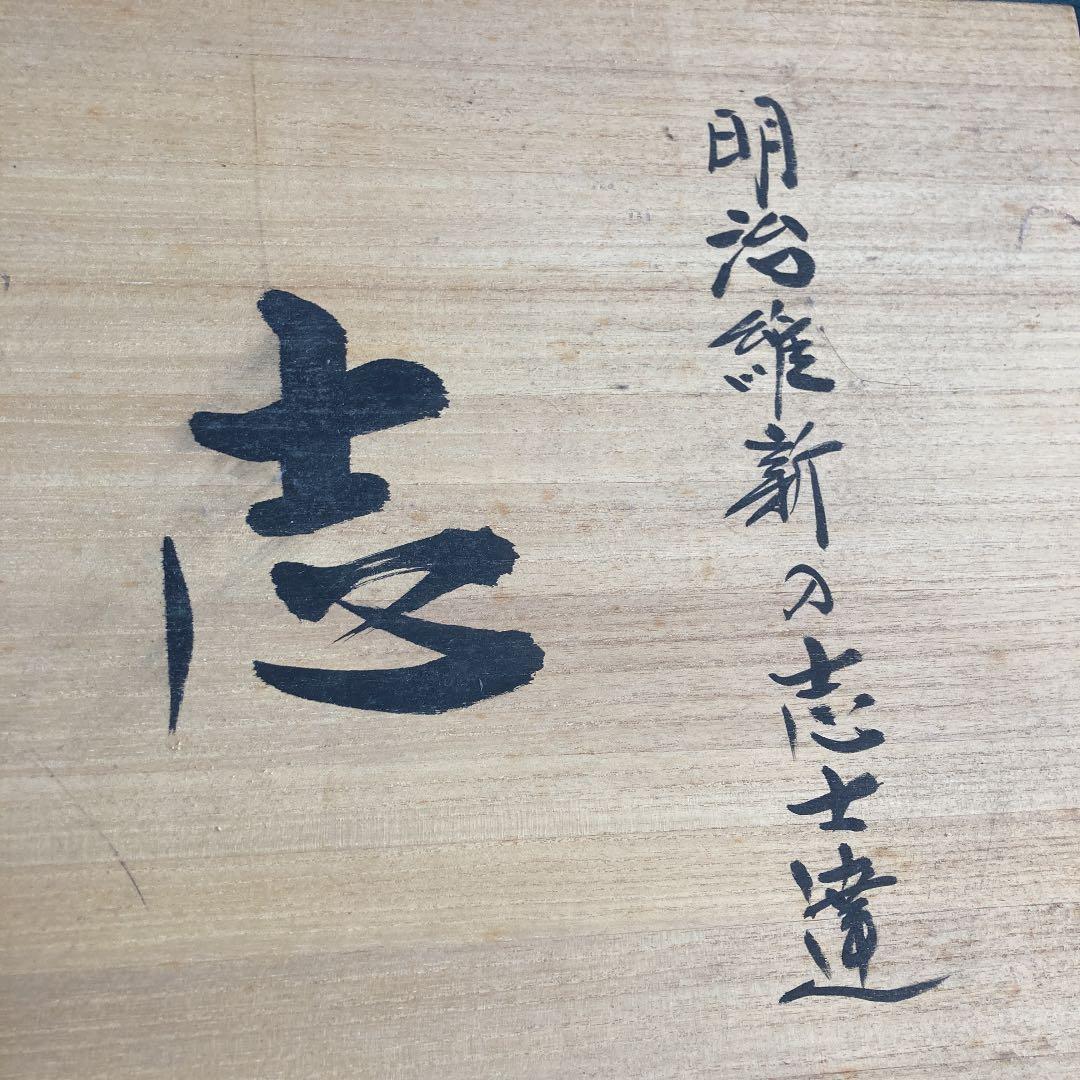 明治維新の志士達
志